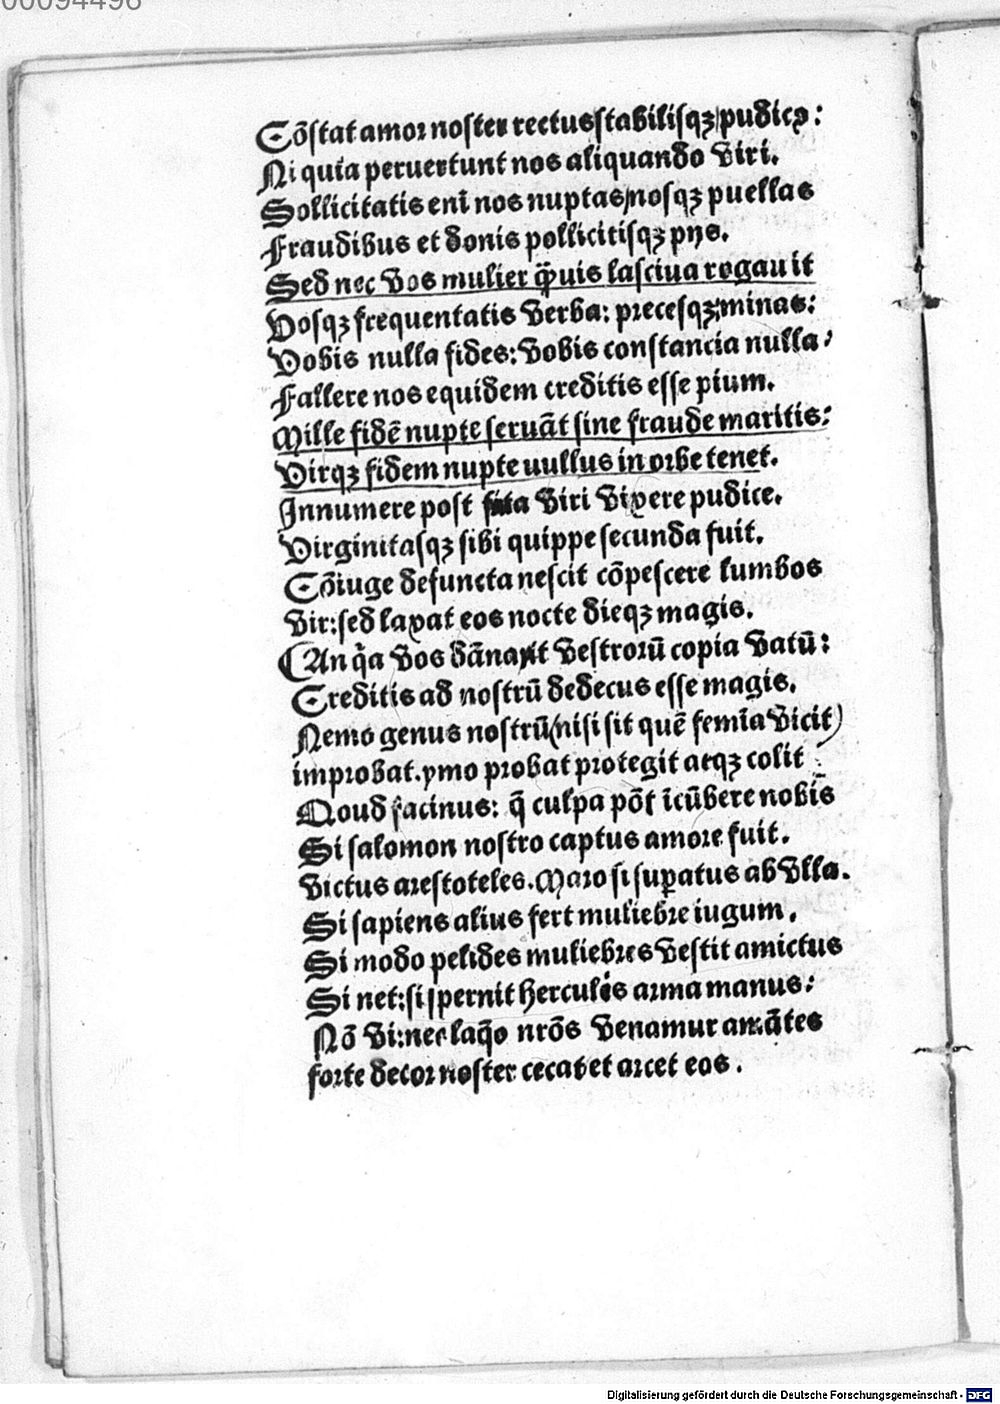 00094496
Cōstat amor noster rectusstabilisqꝫ pudicꝰ:
Ni quia peruertunt nos aliquando viri.
Sollicitatis eni̅ nos nuptas/nosqꝫ puellas
Fraudibus et donis pollicitisqꝫ pijs.
Sed nec vos mulier q̄uis lasciua rogauit
Vosqꝫ frequentatis verba: precesqꝫ;minas:
Vobis nulla fides: vobis constancia nulla:
Fallere nos equidem creditis esse pium.
Mille fidē nupte seruāt sine fraude maritis:
Virqꝫ fidem nupte uullus in orbe tenet.
Innumere post viri vixere pudice.
Virginitasqꝫ sibi quippe secunda fuit.
Cōiuge defuncta nescit cōpescere lumbos
vir:sed laxat eos nocte dieqꝫ magis.
An q̄a vos dānauit vestrorū copia vatū:
Creditis ad nostrū dedecus esse magis.
Nemo genus nostrū(nisi sit quē femīa vicit)
improbat.ymo probat protegit atqꝫ colit
Qoud facinus: q̄ culpa pōt īcūbere nobis
Si salomon nostro captus amore fuit.
victus arestoteles. Maro si suꝑatus ab vlla.
Si sapiens alius fert muliebre iugum.
Si modo pelides muliebres vestit amictus
Si net:si spernit herculēs arma manus:
Nō vi:nec laq̄o nrōs venamur amātes
forte decor noster cecat et arcet eos.
Digitalisierung gefördert durch die Deutsche Forschungsgemeinschaft - DFG